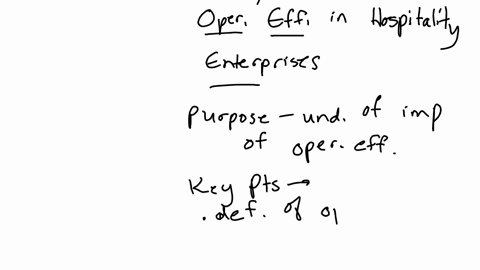 Oper. Effi. in Hospitality
Enterprises
Purpose – und. of imp
of oper. eff.
Key pts →
. def. of